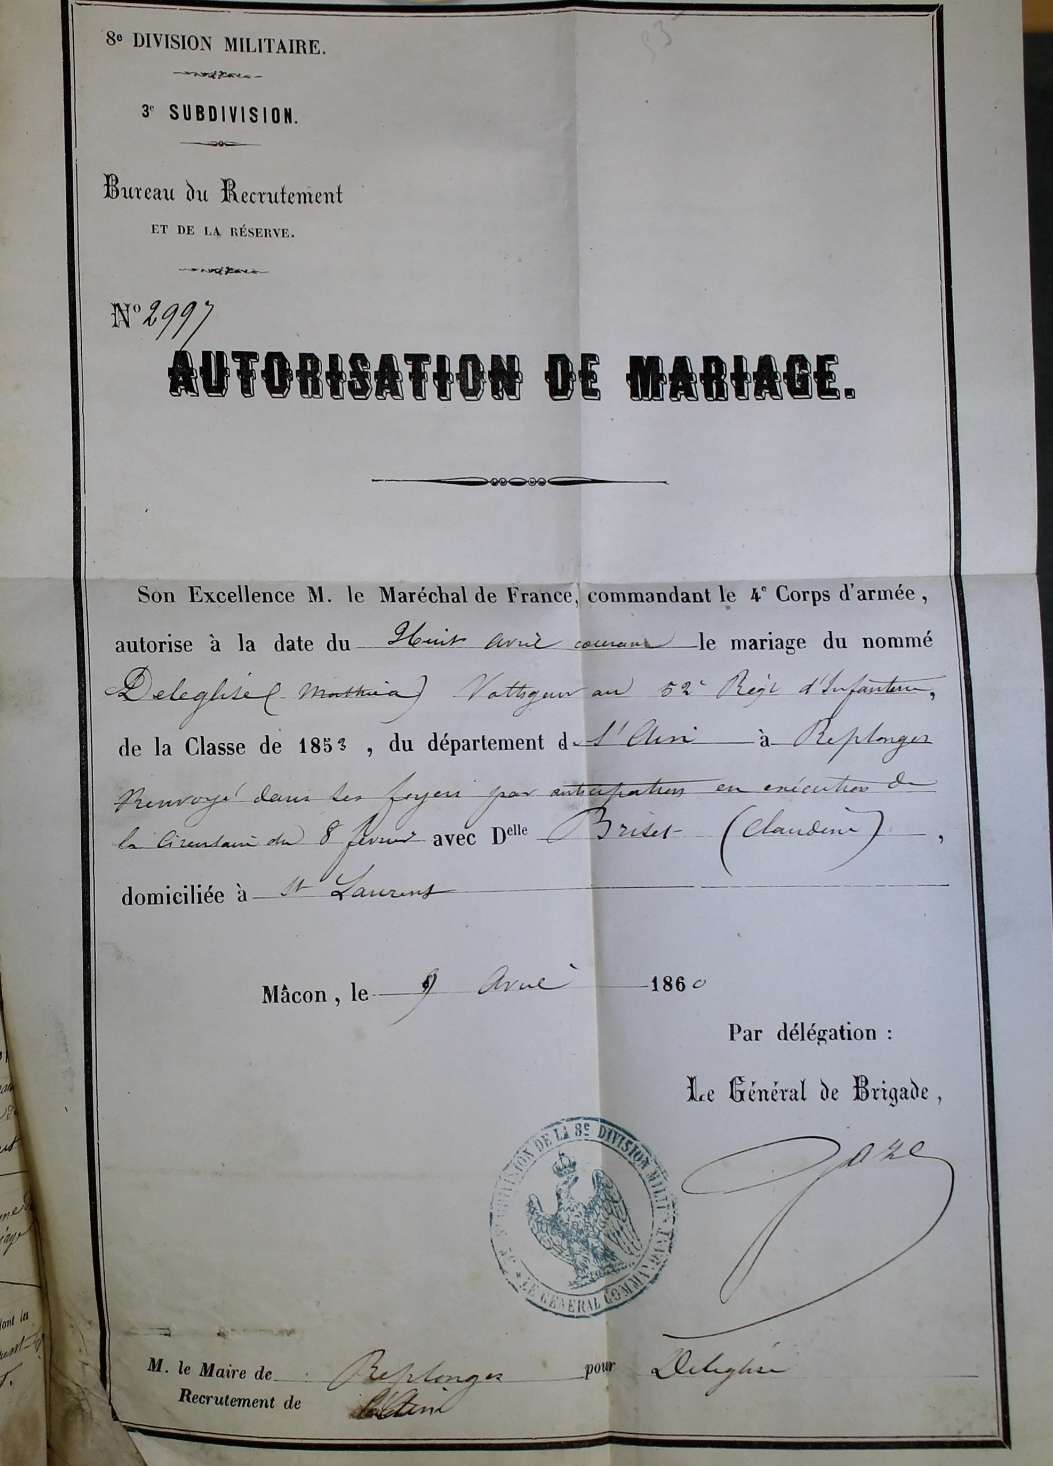 8e DIVISION MILITAIRE.
3e SUBDIVISION.
Bureau du Recrutement
ET DE LA RÉSERVE.
No 2997
AUTORISATION DE MARIAGE.
Son Excellence M. le Maréchal de France, commandant le 4e Corps d'armée,
autorise à la date du Huit avril courant le mariage du nommé
Deleglise (Mathia) Voltigeur au 52e Régt d'Infanterie,
de la Classe de 1853, du département de l'Ain à Replonges
Renvoyé dans ses foyers par anticipation en exécution de
la Circulaire du 8 février avec Delle Briset (Claudine),
domiciliée à St Laurent
Mâcon, le 9 Avril 1860
Par délégation :
Le Général de Brigade,
3e SUBDIVISION DE LA 8e DIVISION MILITAIRE
LE GÉNÉRAL COMMANDANT
M. le Maire de Replonges pour Deleglise
Recrutement de l'Ain